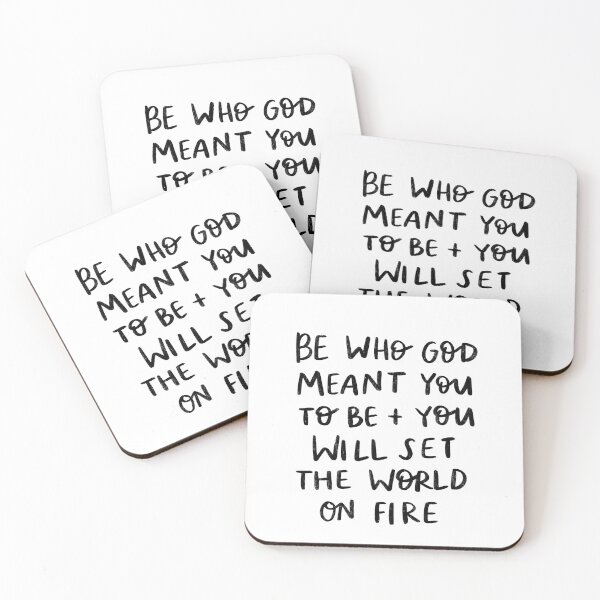 BE WHO GOD
MEANT YOU
TO BE YOU
BE WHO GOD
MEANT YOU
TO BE + YOU
WILL SET
THE WORLD
BE WHO GOD
MEANT YOU
TO BE + YOU
WILL SET
THE
ON
BE WHO GOD
MEANT YOU
TO BE + YOU
WILL SET
THE WORLD
ON FIRE